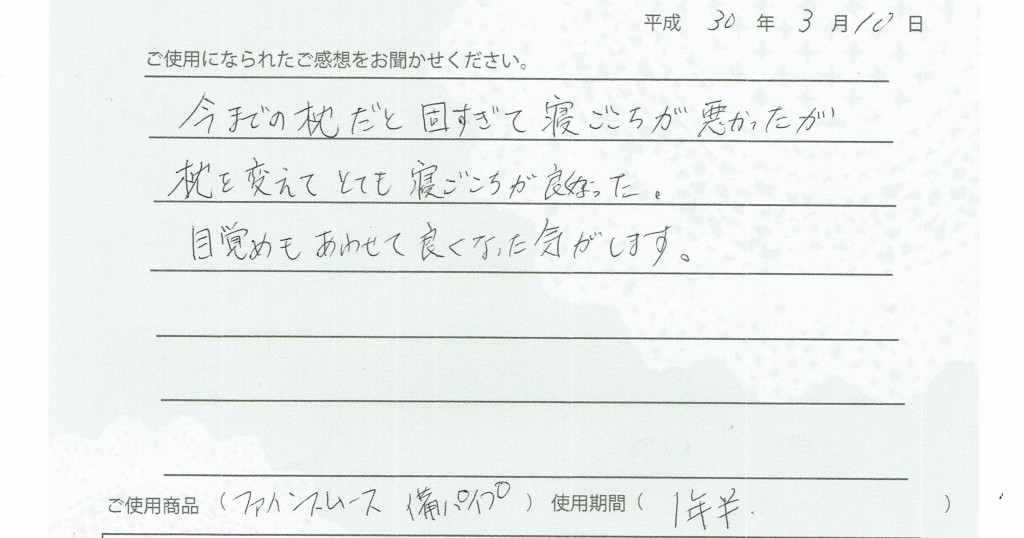 平成 30 年 3 月 10 日
ご使用になられたご感想をお聞かせください。
今までの枕だと固すぎて寝ごこちが悪かったが
枕を変えてとても寝ごこちが良かった。
目覚めもあわせて良くなった気がします。
ご使用商品 (ファインスムース 備パイプ) 使用期間 ( 1年半. )